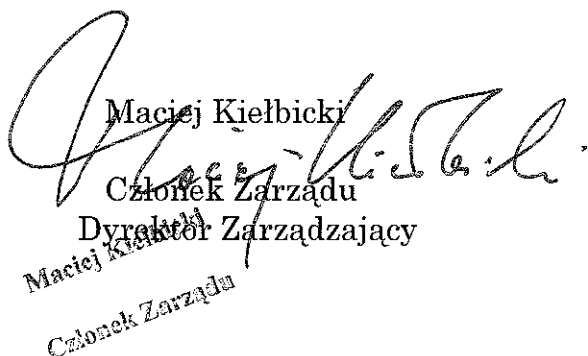 Maciej Kiełbicki
Maciej Kiełbicki
Członek Zarządu
Dyrektor Zarządzający
Maciej Kiełbicki
Członek Zarządu